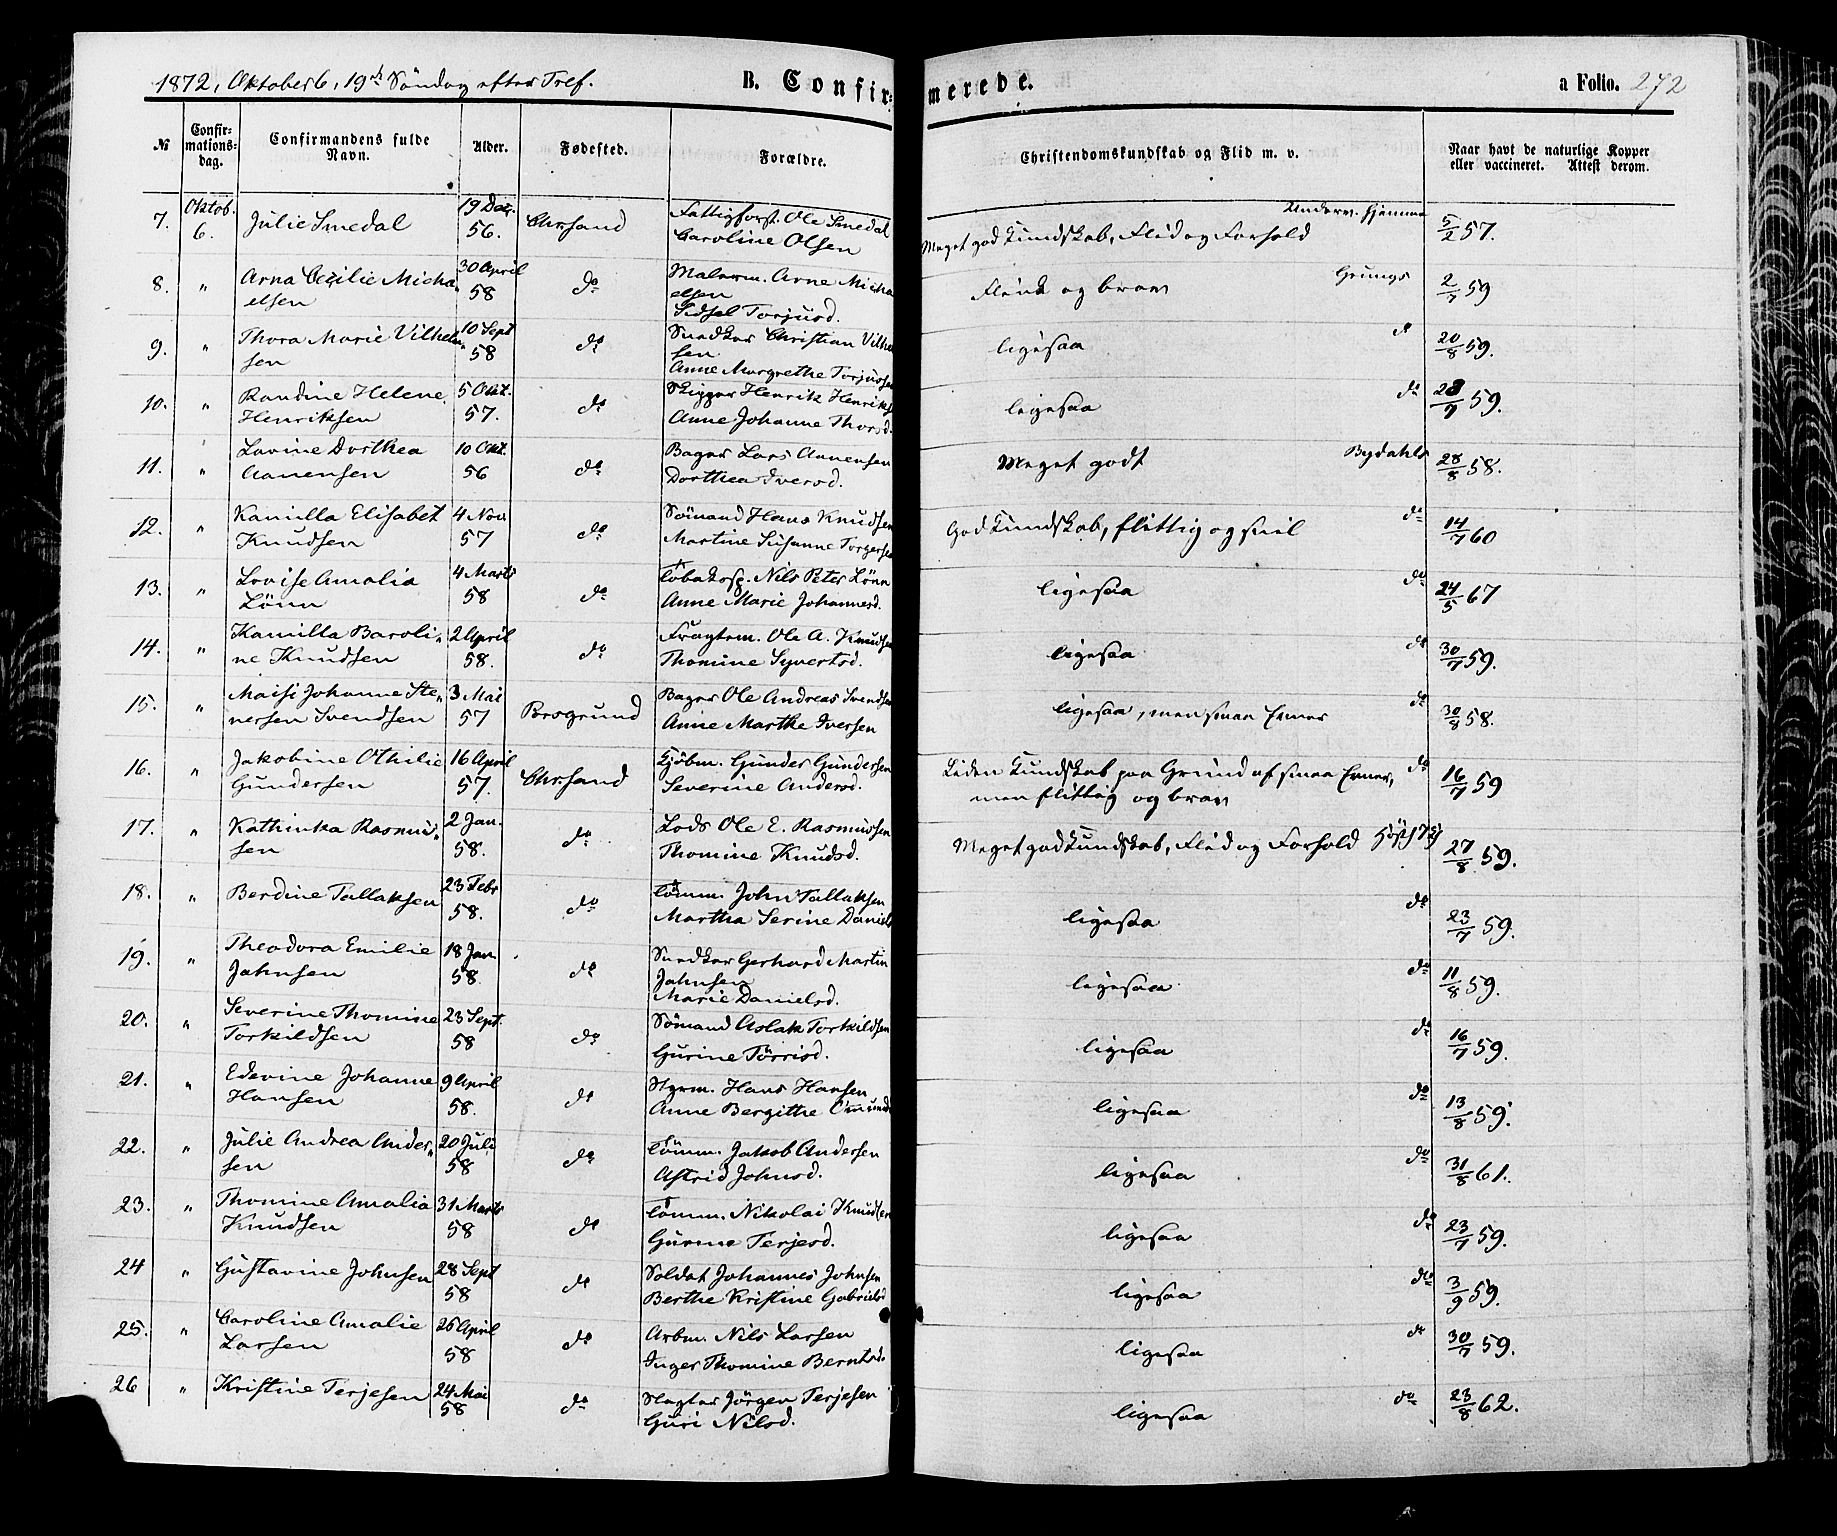 1872, Oktober 6, 19de Söndag efter Tref.
B. Confirmerede.
a Folio. 272
№ Confirmationsdag. Confirmandens fulde Navn. Alder. Fødested. Forældre. Christendomskundskab og Flid m. v. Naar havt de naturlige Kopper eller vaccineret. Attest derom.
Underv. hjemme
7. Oktob. 6. Julie Smedal 19 Dec. 56. Chrsand Fattigforst. Ole Smedal
Caroline Olsen Meget god Kundskab, Flid og Forhold 5/2 57.
8. " Arna Cecilie Micha- 30 April 58 do Malerm. Arne Micha
elsen elsen
Sidsel Torjusd. Flink og brav Grungs 2/7 59
9. " Thora Marie Vilhelm- 10 Sept 58 do Snedker Christian Vilhel
sen sen
Anne Margrethe Torjussen ligesaa do 20/8 59.
10. " Randine Helene 5 Okt. 57. do Skipper Henrik Henriks
Henriksen Anne Johanne Thorsd. ligesaa do 28/7 59.
11. " Lovine Dorthea 10 Okt. 56 do Bager Lars Aanensen
Aanensen Dorthea Iversd. Meget godt Bydahls 28/8 58.
12. " Kamilla Elisabet 4 Nov 57 do Sömand Hans Knudsen
Knudsen Martine Susanne Torgersen God Kundskab, flittig og snil do 14/7 60
13. " Lovise Amalia 4 Marts 58 do Tobaksp. Nils Peter Lönn
Lönn Anne Marie Johannesd. ligesaa do 24/5 67
14. " Kamilla Baroli- 2 April 58. do Fragtem. Ole A. Knudsen
ne Knudsen Thomine Syvertsd. ligesaa do 30/7 59.
15. " Maisi Johanne Ste- 3 Mai 57 Brogrund Bager Ole Andreas Svendsen
nersen Svendsen Anne Marthe Iversen ligesaa, men smaa Evner do 30/8 58.
16. " Jakobine Othilie 16 April 57. Chrsand Kjöbm. Gunder Gundersen
Gundersen Severine Andersd. Liden Kundskab paa Grund af smaa Evner, do
men flittig og brav 16/7 59
17. " Kathinka Rasmus- 2 Jan. 58. do Lods Ole E. Rasmussen
sen Thomine Knudsd. Meget god Kundskab, Flid og Forhold 27/8 59.
18. " Berdine Tallaksen 23 Febr 58. do Tömm. John Tallaksen
Martha Serine Daniels ligesaa do 23/7 59.
19. " Theodora Emilie 18 Jan 58. do Snedker Gerhard Martin
Jahnsen Jahnsen
Marie Danielsd. ligesaa do 11/8 59.
20. " Severine Thomine 23 Sept. 58 do Sömand Aslak Torkildsen
Torkildsen Gurine Törrisd. ligesaa do 16/7 59.
21. " Edevine Johanne 9 April 58. do Styrm. Hans Hansen
Hansen Anne Bergithe ligesaa do 13/8 59.
22. " Julie Andrea Ander- 20 Juli 58 do Tömm. Jakob Andersen
sen Astrid Johnsd. ligesaa do 31/8 61.
23. " Thomine Amalia 31 Marts 58 do Tömm. Nikolai Knudsen
Knudsen Gurine Terjesd. ligesaa do 23/7 59.
24 " Gustavine Johnsen 28 Sept 58 do Soldat Johannes Johnsen
Berthe Kristine Gabrielsd ligesaa do 3/9 59.
25. " Caroline Amalie 26 April 58 do Arbm. Nils Larsen
Larsen Inger Thomine Berntsd. ligesaa do 30/7 59.
26 " Kristine Terjesen 24 Mai 58 do Slagter Jörgen Terjesen
Guri Nilsd. ligesaa do 23/8 62.